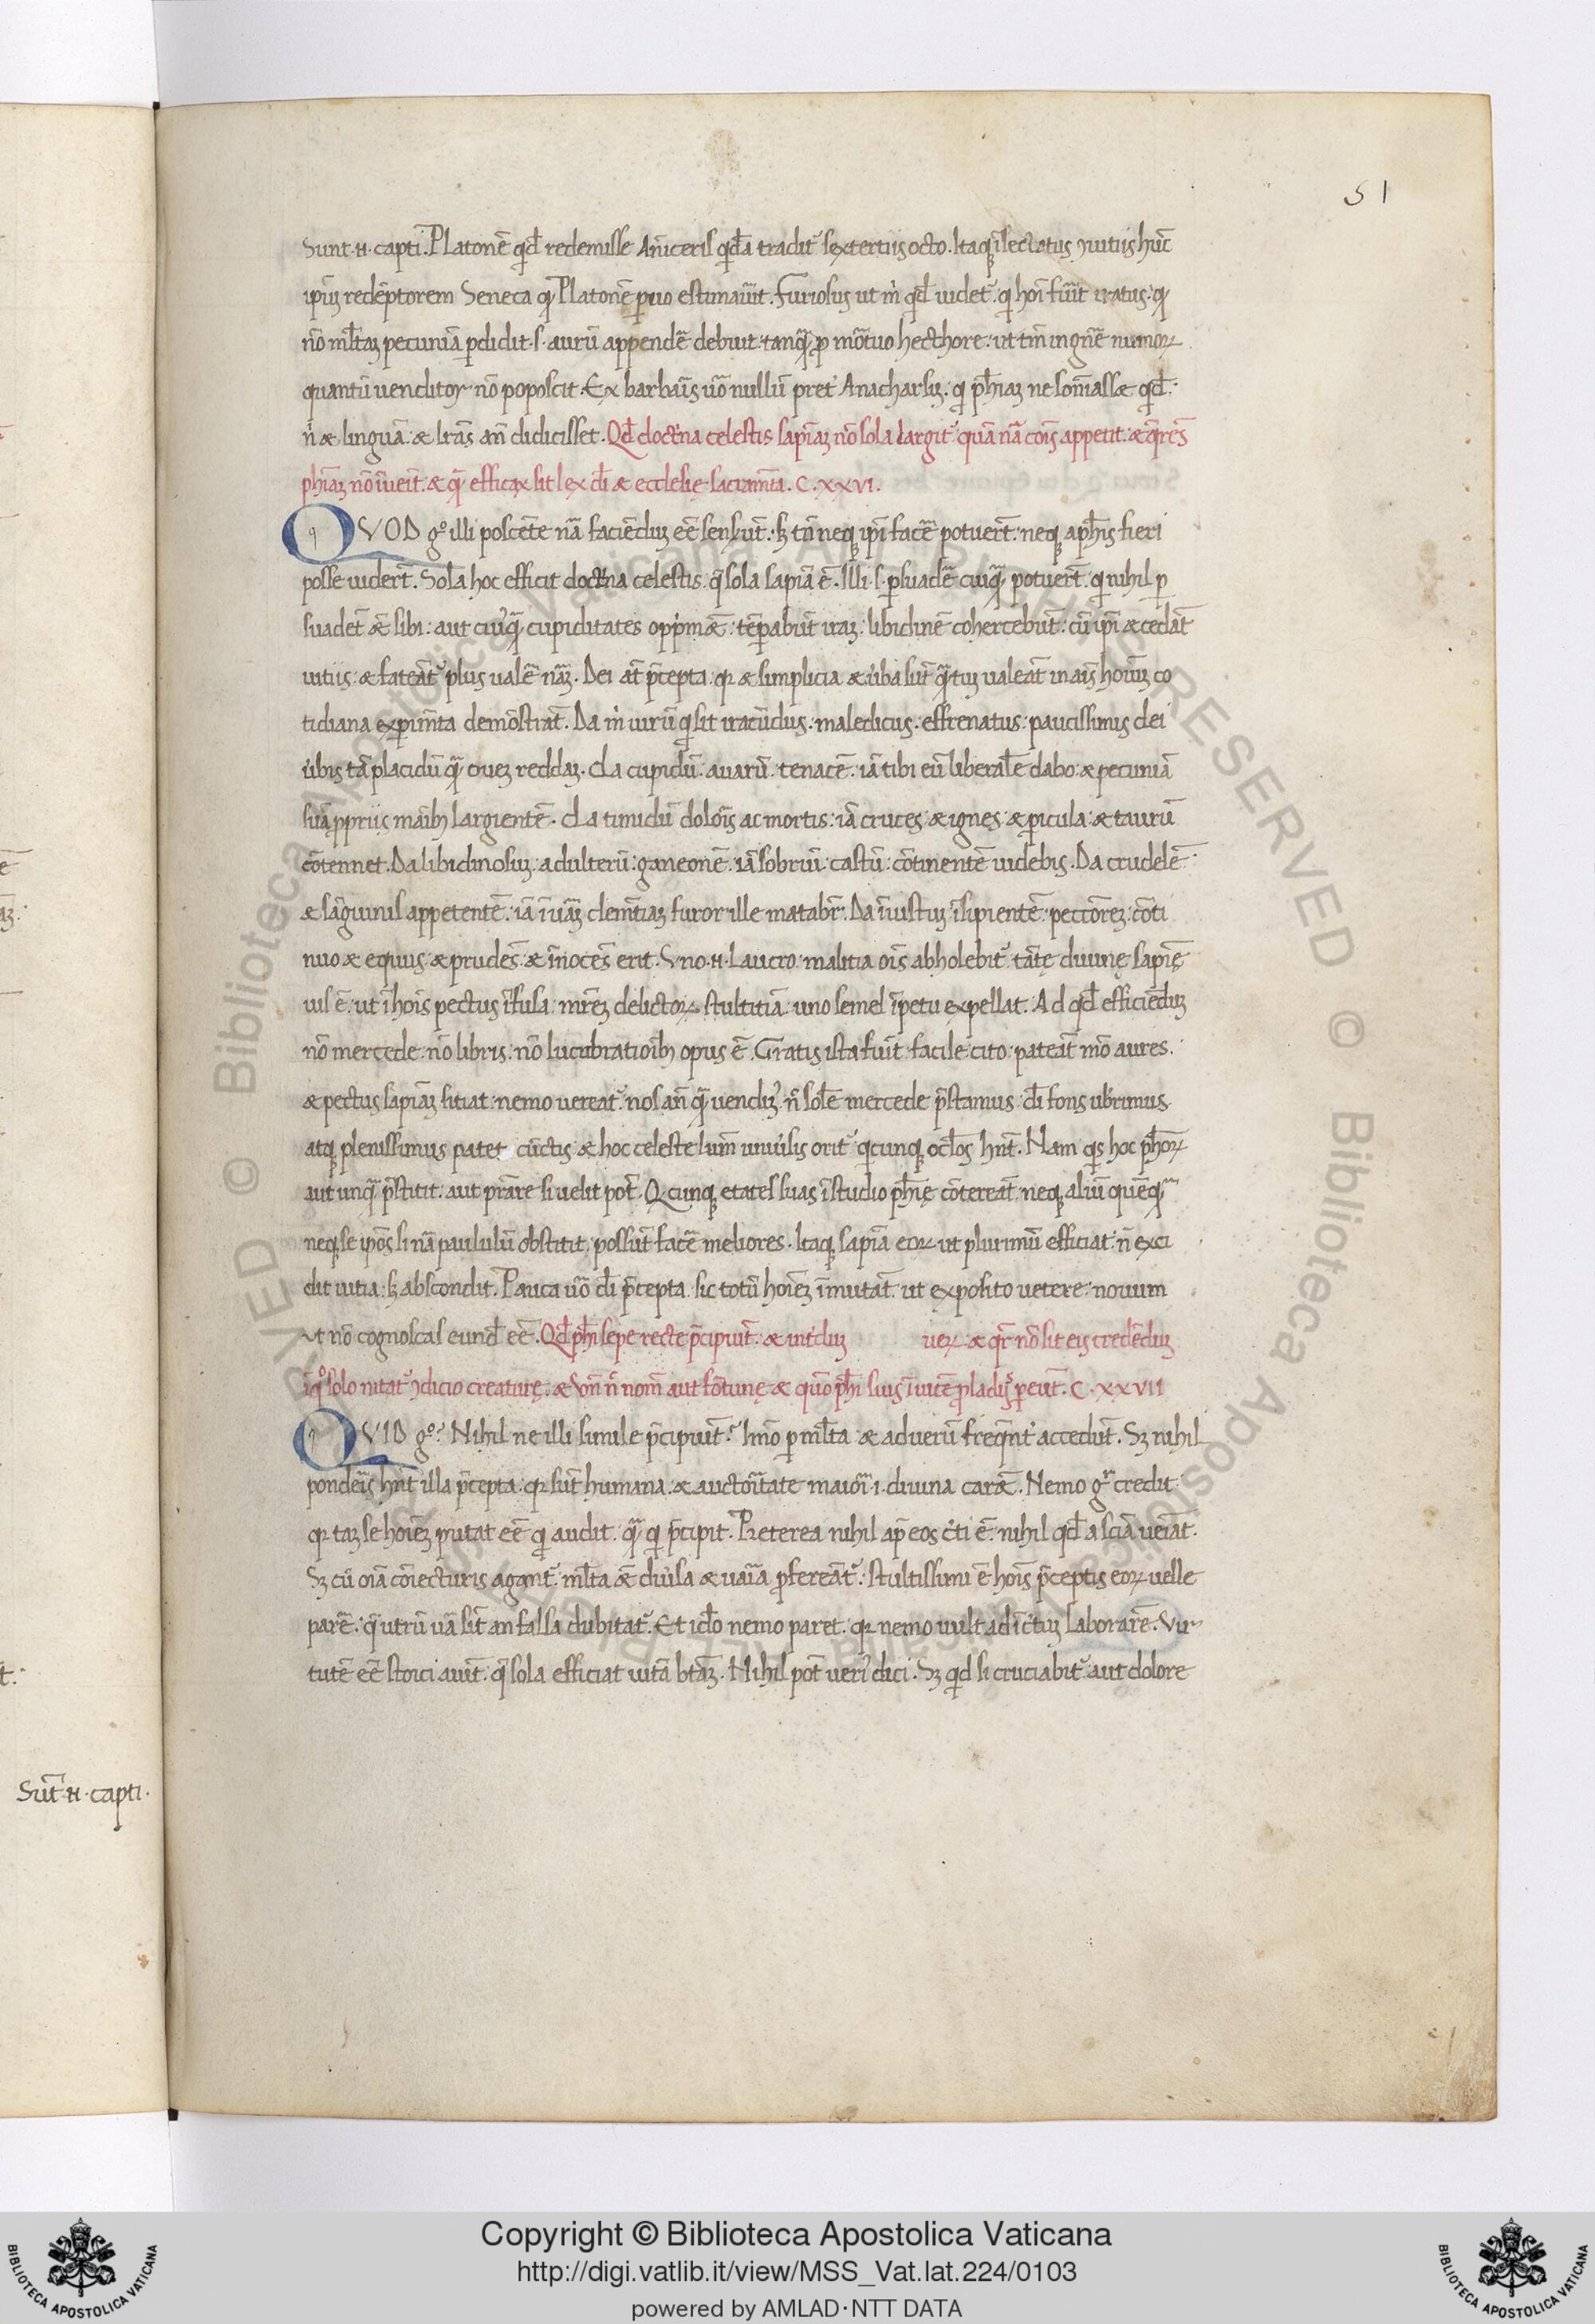 51
Sunt .n. capti. Platonē qd̄ redemisse Aniceris qdā tradit᷑ sextertiis octo. Itaq; īsectatus ꝯuitiis hūc
ipm̄ redēptorem Seneca qꝫ Platonē paruo estimauit. Furiosus ut m̄ qd̄ uidet᷑ q hoī fuīt iratus: qꝫ
nō ml̄taꝫ pecuniā pdidit. s. aurū appendē debuit tanqꝫ p mōtuo hecthore: ut tm̄ ingnē numoꝝ
quantū uenditor nō poposcit. Ex barbaīs uō nullū pret᷑ Anacharsiꝫ. q ph̄iaꝫ ne som̄iassæ qd̄:
n̄ æ linguā: æ lrās an̄ didicisset. Qd̄ doct̄na celestis sapīaꝫ nō sola largit᷑ quā nā cois appetit: æ q̄rēs
ph̄iaꝫ nō īueīt: æ qꝫ efficax sit lex dī æ ecclesię sacram̄ta. C. XXVI.
QVOD gº illi poscēte nā faciēduꝫ eē sensūt: sꝫ tn̄ neq; ipi facē potuer̄t: neq; a ph̄is fieri
posse uider̄t. Sola hoc efficit doct̄na celestis: q̄ sola sapīa ē. Illi .s. psuadē cuiqꝫ potuer̄t: q nihil p
suadet ǣ sibi: aut cuiqꝫ cupiditates oppmǣ: tēpabūt iraꝫ: libidinē cohercebūt: cū ipi æ cedāt
uitiis: æ fateāt᷑ plus ualē nāꝫ. Dei āt p̄cepta: qꝛ æ simplicia æ ūba sūt q̄tuꝫ ualeāt in aīs hoīuꝫ co
tidiana expim̄ta demōstrāt. Da m̄ uirū q sit iracūdus: maledicus: effrenatus: paucissimis dei
ūbis tā placidū qꝫ oueꝫ reddaꝫ. da cupidū: auarū: tenacē: iā tibi eū liberalē dabo: æ pecuniā
suā ppriis māibꝫ largientē. da timidū doloīs ac mortis: iā cruces: æ ignes: æ picula: æ taurū
cōtennet. Da libidinosuꝫ: adulterū: ganeonē: iā sobriū: castū: cōtinentē uidebis. Da crudelē
æ sāguinis appetentē: iā ī uāꝫ clem̄tiaꝫ furor ille matabr̄. Da īiustuꝫ: īsipientē: peccōreꝫ: cōti
nuo æ equus: æ prudēs: æ īnocēs erit. Vno .n. lauacro malitia oīs abholebit᷑ tātę diuinę sapīę
uis ē: ut ī hoīs pectus īfusa: mr̄eꝫ delictoꝝ stultitiā: uno semel īpetu expellat. Ad qd̄ efficiēduꝫ
nō mercede: nō libris: nō lucubratioībꝫ opus ē. Gratis ista fiūt: facile: cito: pateāt mō aures.
æ pectus sapīaꝫ sitiat: nemo uereat᷑: nos aq̄ꝫ n̄ uendiꝫ: n̄ solē mercede p̄stamus: dī fons ub̄rimus
atq; plenissimus patet cūctis: æ hoc celeste lum̄ uniūsis orit᷑: qcunq; ocl̄os hn̄t. Nam qs hoc ph̄oꝝ
aut unqꝫ p̄stitit: aut prārē si uelit pōt. Qcunq; etates suas ī studio ph̄ię cōtereāt: neq; aliū quēqꝫ
neq; se ipōs si nā paululū obstitit: possūt facē meliores. Itaq; sapīa eoꝝ ut plurimū efficiat: n̄ exci
dit uitia: sꝫ abscondit. Pauca uō dī p̄cepta sic totū hoīeꝫ īmutāt: ut exposito uetere: nouum
ut nō cognoscas eund̄ eē. Qd̄ ph̄i sepe recte p̄cipiūt: æ int̄duꝫ ueꝝ æ qr̄ nō sit eis credēduꝫ
QVID gº? Nihil ne illi simile p̄cipiūt? Imō p ml̄ta æ ad uerū freqn̄t᷑ accedūt. Sꝫ nihil
pondeīs hn̄t illa p̄cepta: qꝛ sūt humana: æ auctoītate maioīī .i. diuina carǣ. Nemo gº credit
qꝛ taꝫ se hoīeꝫ putat eē q audit: qꝫ q p̄cipit. Preterea nihil ap̄ eos c̄ti ē: nihil qd̄ a sciā ueiāt.
Sꝫ cū oīa cōiecturis agant᷑: ml̄ta ǣ diūsa æ uaīa pfereāt᷑: stultissimi ē hoīs p̄ceptis eoꝝ uelle
parē: q̄ utrū uā sīt an falsa dubitat᷑. Et id̄o nemo paret: qꝛ nemo uult ad īc̄tuꝫ laborarē. Vir
tutē eē stoici aiūt: q̄ sola efficiat uitā btāꝫ. Nihil pōt ueri᷑ dici. Sꝫ qd si cruciabit᷑ aut dolore
Sūt .n. capti.
Copyright © Biblioteca Apostolica Vaticana
http://digi.vatlib.it/view/MSS_Vat.lat.224/0103
powered by AMLAD·NTT DATA
BIBLIOTECA APOSTOLICA VATICANA
BIBLIOTECA APOSTOLICA VATICANA